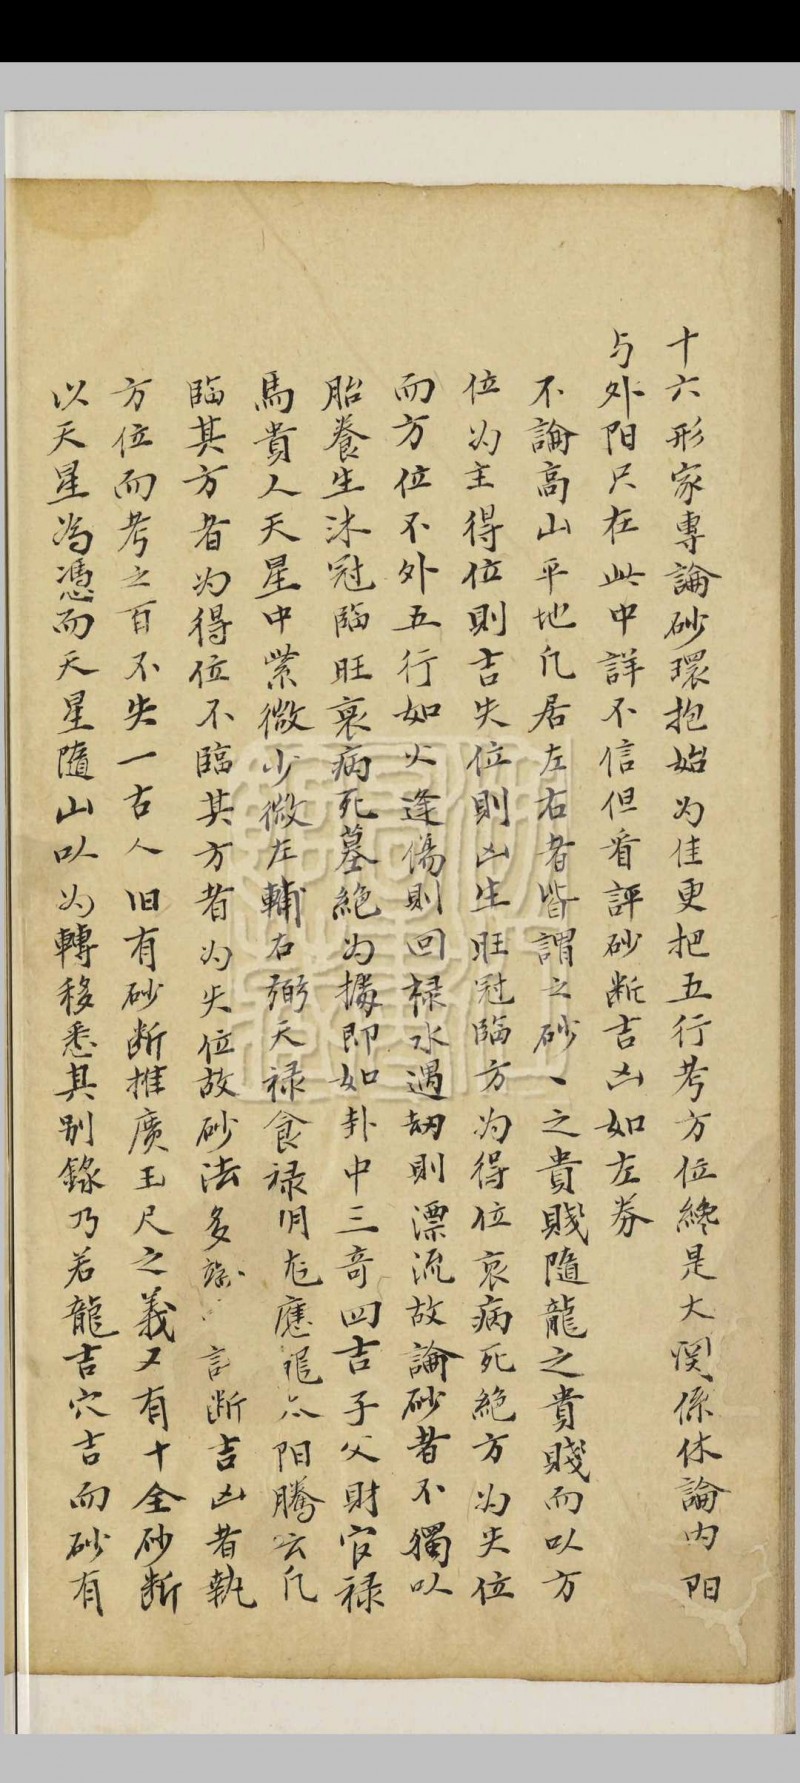 十六形家專論砂環抱始为佳更把五行考方位纔是大関係休論内阳
与外阳尺在此中詳不信但看評砂断吉凶如左券
不論高山平地凡居左右者皆謂之砂丶之貴賤隨龍之貴賤而以方
位为主得位則吉失位則凶生旺冠臨方为得位衰病死絶方为失位
而方位不外五行如火逢傷則回禄水遇刼則漂流故論砂者不獨以
胎養生沐冠臨旺衰病死墓絶为據即如卦中三奇四吉子父財官禄
馬貴人天星中紫微少微左輔右弼天禄食禄
阳騰云凡
臨其方者为得位不臨其方者为失位故砂法多
断吉凶者執
方位而考之百不失一古人旧有砂断推廣玉尺之義又有十全砂断
以天星為憑而天星隨山以为轉移悉具别錄乃若龍吉穴吉而砂有